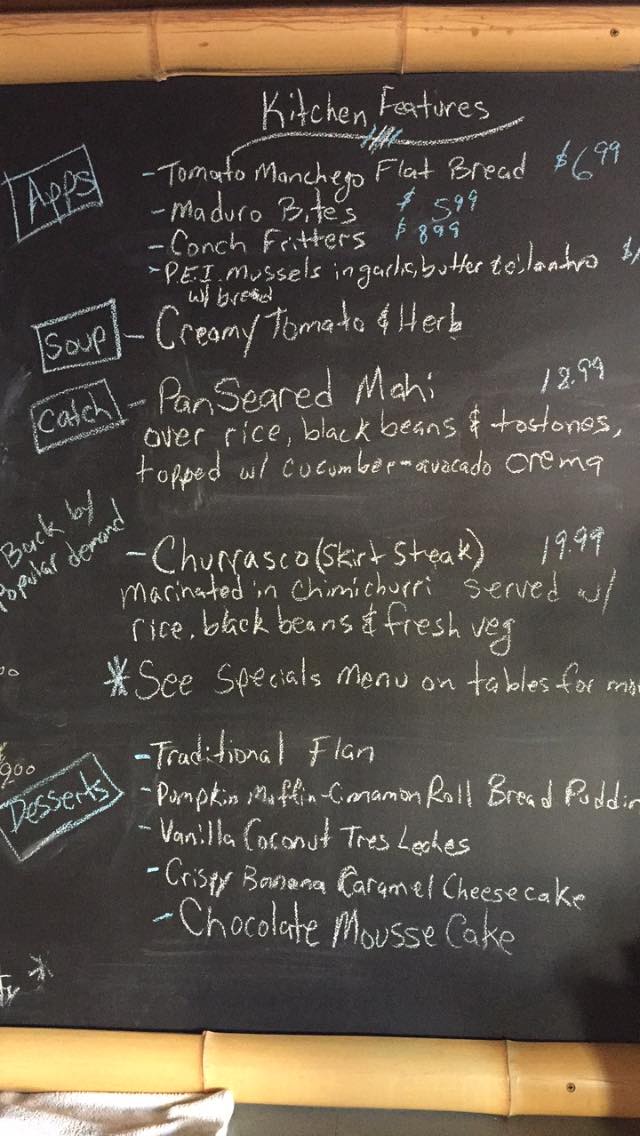 Kitchen Features
Apps
-Tomato Manchego Flat Bread $6.99
-Maduro Bites $5.99
-Conch Fritters $8.99
-P.E.I. Mussels in garlic, butter & cilantro $
w/ bread
Soup - Creamy Tomato & Herb
Catch - Pan Seared Mahi 18.99
over rice, black beans & tostones,
topped w/ cucumber-avocado crema
Back by
Popular demand
-Churrasco (Skirt Steak) 19.99
marinated in chimichurri served w/
rice, black beans & fresh veg
*See Specials Menu on tables for
9.00
Desserts
-Traditional Flan
-Pumpkin Muffin-Cinnamon Roll Bread Puddin
-Vanilla Coconut Tres Leches
-Crispy Banana Caramel Cheesecake
-Chocolate Mousse Cake